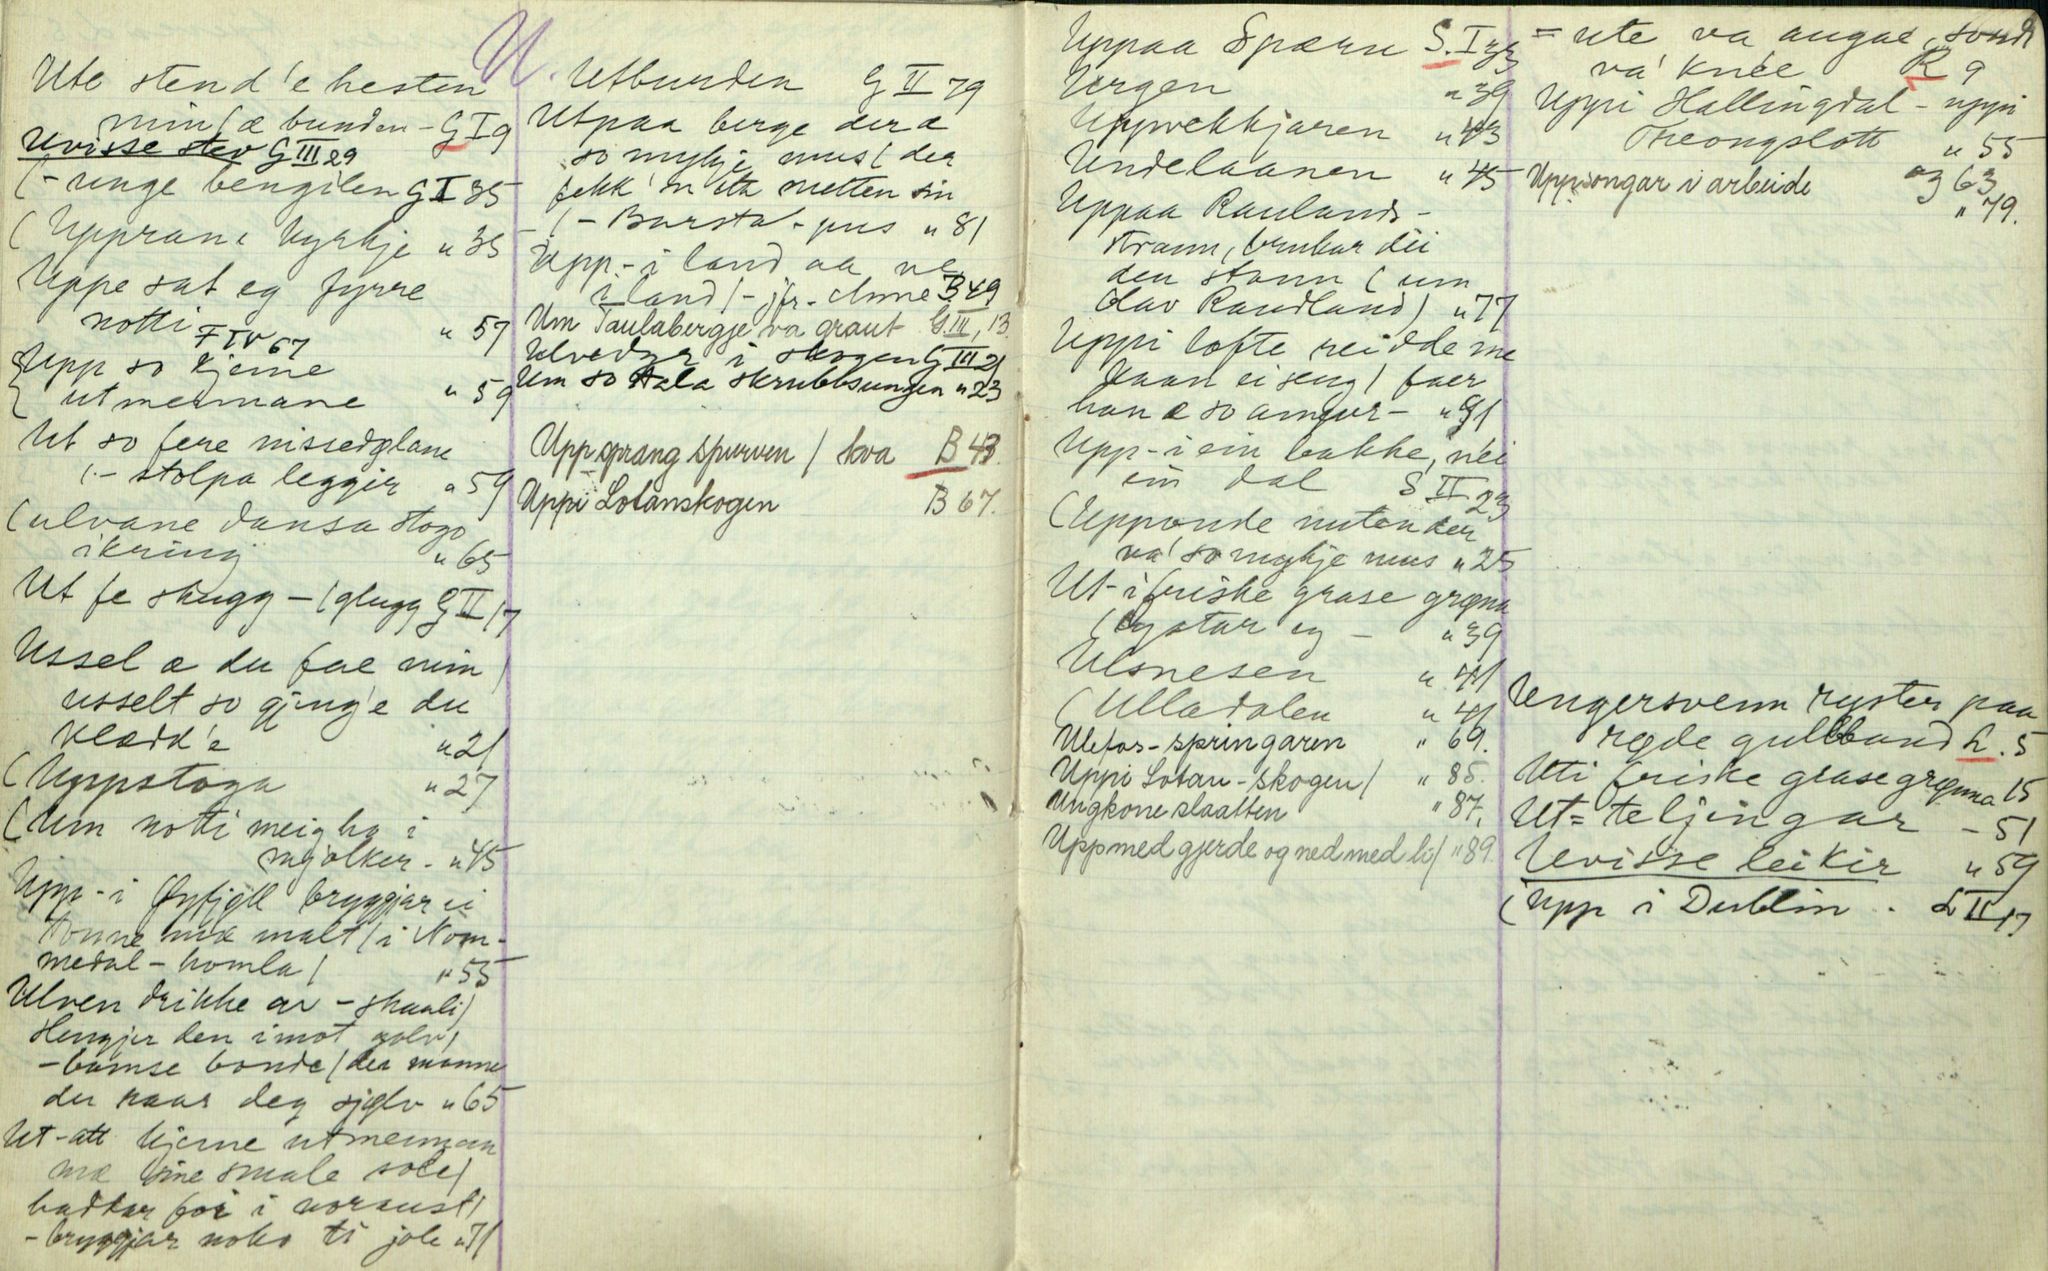 U.
Ute stend'e hesten
min / æ bunden - G I 9
Uvisse stev G III 29
(- unge bengilen G I 35
(Upprane kyrkje " 35
Uppe sat eg fyrre
notti F IV 67 " 57
Upp so kjeme
utmennane " 59
Ut so fere nissedglane
(- stolpa leggir " 59
(ulvane dansa stogo
ikring " 65
Ut fe skugg - / glugg G II 17
Ussel æ du fae min /
usselt so gjeng'e du
klædd'e " 21
(Uppstoga " 27
(Um notti meig ho i
mjolker - " 45
Upp - i Øyfjell bryggjar ei
tonne mæ malt / i Nom-
medal - homla / " 55
Ulven drikke av - skaali /
slengjer den imot golv /
- bamse bonde / der manne
du naar deg sjølv " 65
Ut - att kjeme utmennan
mæ sine smale sole /
badkar for i noraust /
- bryggjar noko ti jole " 71
Utburden G II 79
Utpaa berge der æ
so mykje mus / der
fekk'sn ette netten sin
/ - Barstad - pus " 81
Upp - i land aa ne
i land / - jfr - Anne B 49
Um Taulabergje va graut G III, 13
Ulvedyr i skogen G III 21
Um so tala skrubbsungen " 23
Uppsprang spurven / kva B 43.
Uppi Lotanskogen B 67.
Uppaa Spæren S. I 33
Urgen " 39
Uppvekkjaren " 43
Undelaanen " 45
Uppaa Raulands-
strann, brukar dei
den stann (um
Olav Raudland) " 77
Uppi lofte reidde me
kaan ei seng / faer
han æ so angur - " 91
Upp - i ein bakke, nei
ein dal S II 23
(Uppunde nuten der
va' so mykje mus " 25
Ut - i friske grase grøna
(lystar eg - " 39
Ulsnesen " 41
(Ulladalen " 41
Ulefos - springaren " 69.
Uppi Lotan - skogen / " 85.
Ungkone slaatten " 87.
Upp med gjerde og ned med li / " 89.
= ute va augae, sond
va' knee R 9
Uppi Hallingdal - uppi
Treongslott " 55
Uppsongar i arbeide og 63
" 79.
Ungersvenn ryster paa
røde gullband L. 5
Uti friske grase grøna 15
Ut = teljingar - 51
Uvisse leikir " 59
(Upp i Dublin . L II 17